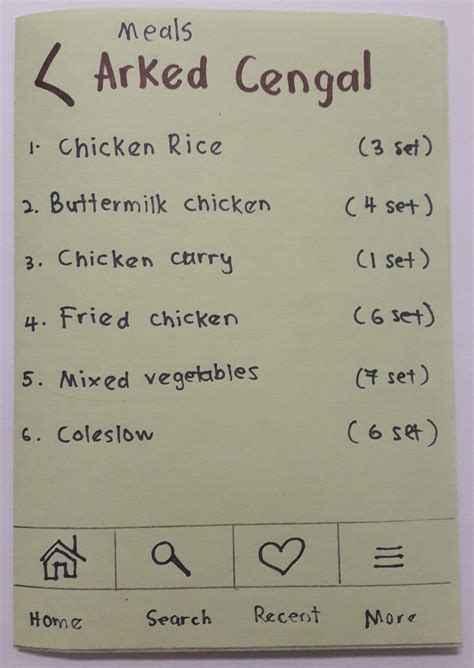 Meals
< Arked Cengal
1. Chicken Rice (3 set)
2. Buttermilk chicken (4 set)
3. Chicken curry (1 set)
4. Fried chicken (6 set)
5. Mixed vegetables (7 set)
6. Coleslow (6 set)
Home Search Recent More